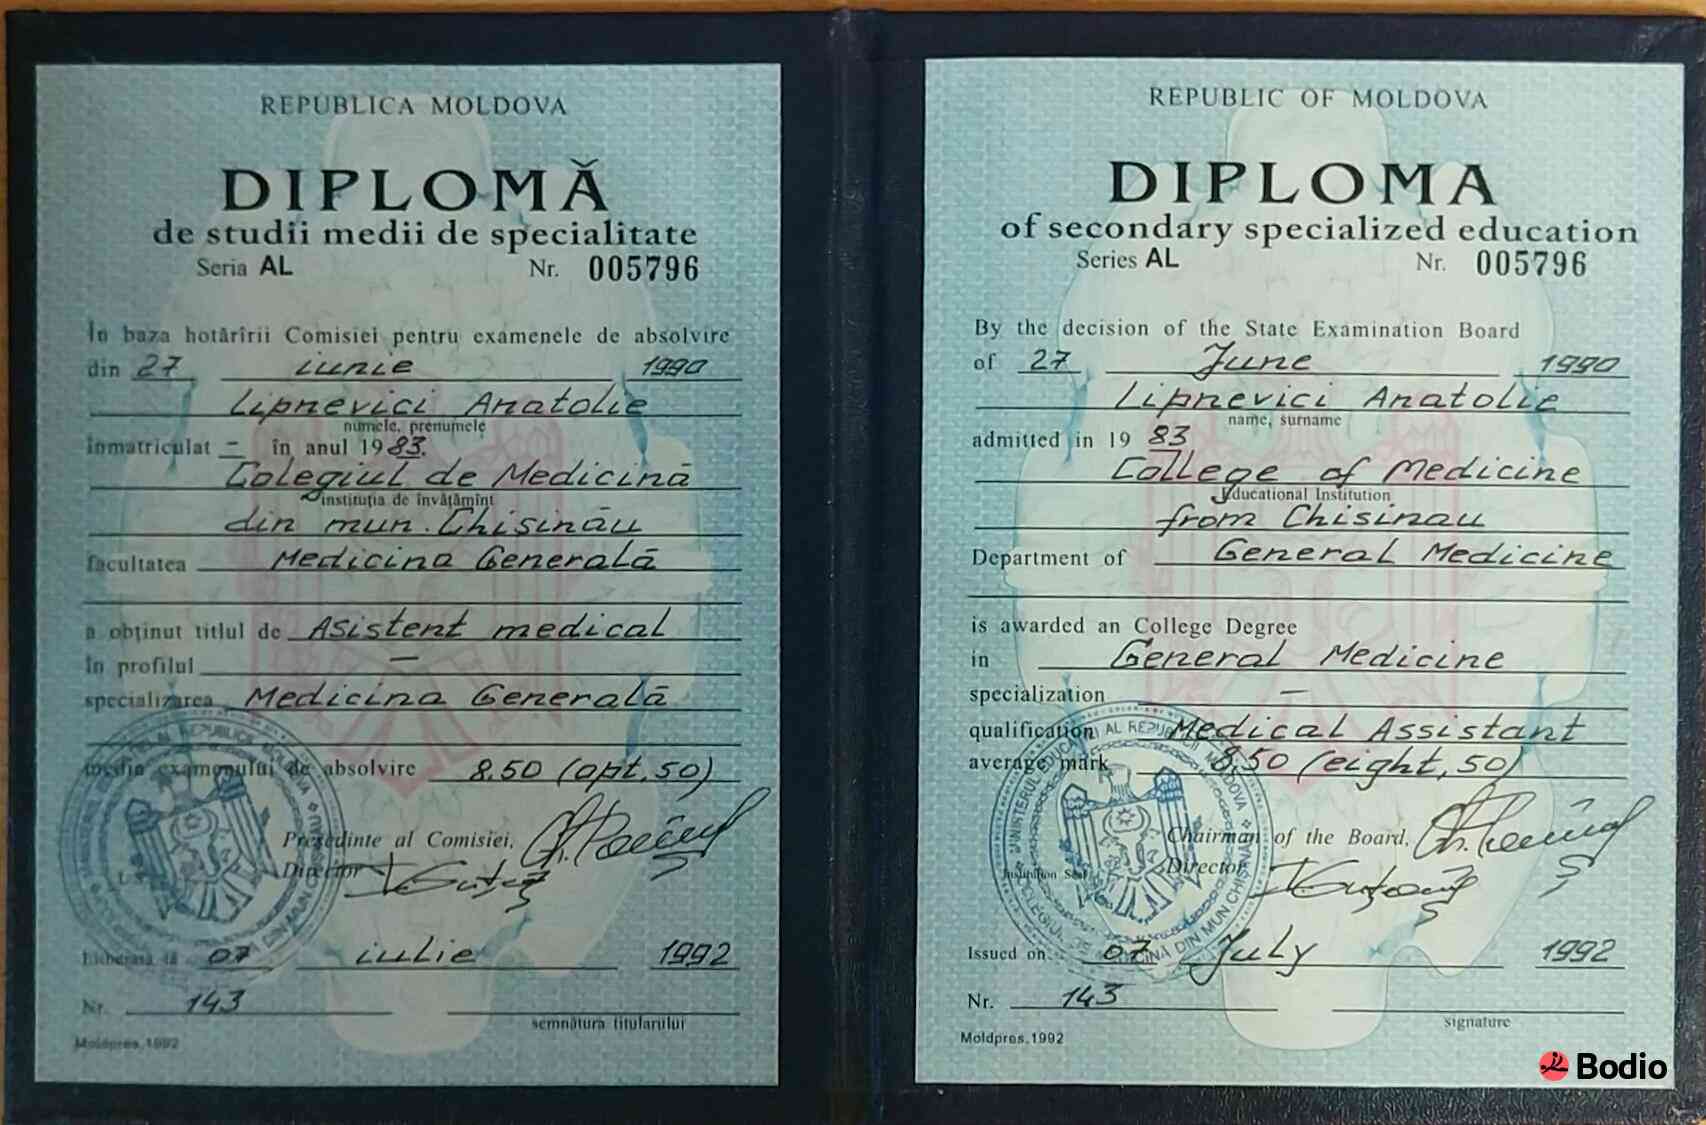 REPUBLICA MOLDOVA
DIPLOMĂ
de studii medii de specialitate
Seria AL Nr. 005796
În baza hotărîrii Comisiei pentru examenele de absolvire
din 27 iunie 1990
Lipnevici Anatolie
numele, prenumele
înmatriculat – în anul 1983.
Colegiul de Medicină
instituția de învățămînt
din mun. Chișinău
facultatea Medicina Generală
a obținut titlul de Asistent medical
în profilul —
specializarea Medicina Generală
media examenului de absolvire 8.50 (opt, 50)
Președinte al Comisiei,
Director
07 iulie 1992
Nr. 143
semnătura titularului
Moldpres, 1992
REPUBLIC OF MOLDOVA
DIPLOMA
of secondary specialized education
Series AL Nr. 005796
By the decision of the State Examination Board
of 27 June 1990
Lipnevici Anatolie
name, surname
admitted in 19 83
College of Medicine
Educational Institution
from Chisinau
Department of General Medicine
is awarded an College Degree
in General Medicine
specialization —
qualification Medical Assistant
average mark 8,50 (eight, 50)
Chairman of the Board,
Director
Institution Seal
Issued on 07 July 1992
Nr. 143
signature
Moldpres, 1992
Bodio